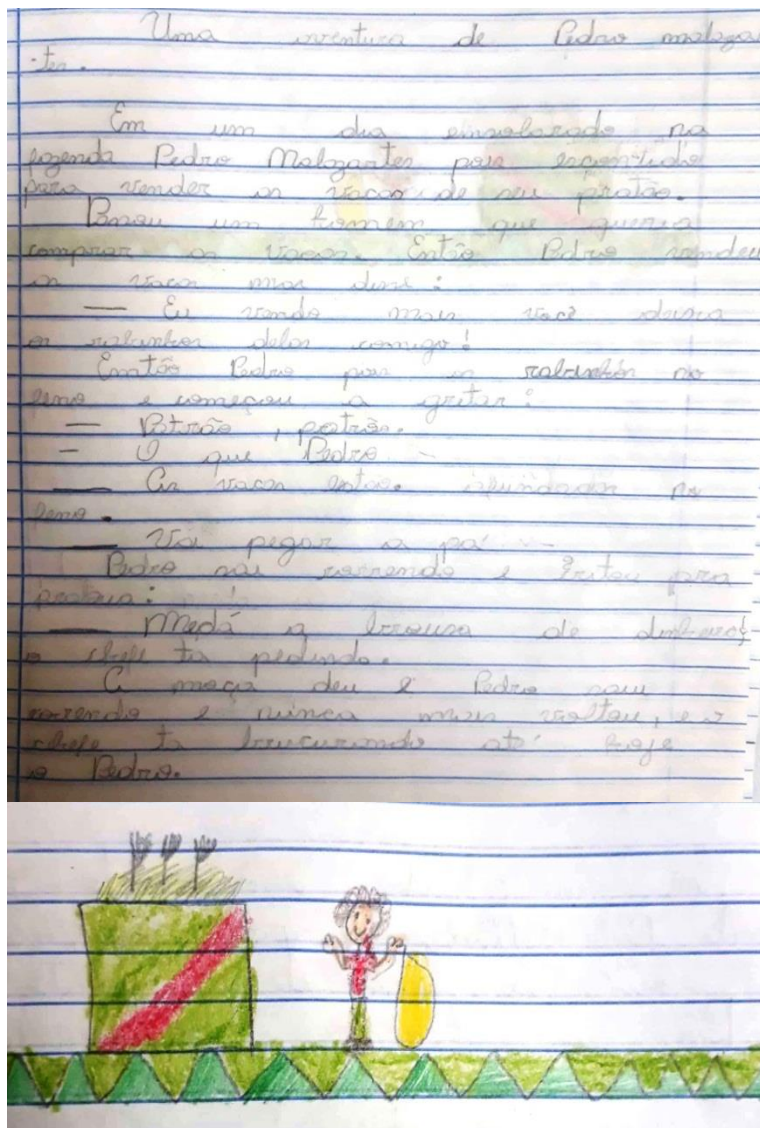 Uma aventura de Pedro malaza
-tes.
Em um dia ensolarado na
fazenda Pedro Malazartes
para vender as vacas de seu patrão.
um homem que queria
comprar as vacas. Então Pedro vendeu
as vacas mas disse:
— Eu vendo mais você deixa
os rabinhos delas comigo!
Emtão Pedro pois os rabinhos no
e começou a gritar:
— Patrão, patrão.
— O que Pedro
— As vacas estão no
— Vai pegar a pá
Pedro sai correndo e gritou pra
— Medá a de dinheiro
o chefe ta pedindo.
A moça deu e Pedro saiu
correndo e nunca mais voltou, e o
chefe ta até hoje
o Pedro.